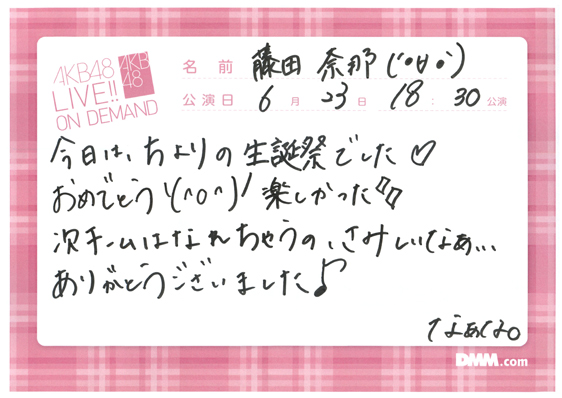 AKB48
LIVE!!
ON DEMAND
AKB
48
名前 藤田 奈那 (˙θ˙)
公演日 6月 23日 18:30公演
今日は、ちよりの生誕祭でした♡
おめでとう\(^o^)/楽しかった
次チームはなれちゃうの、さみしいなぁ…
ありがとうございました♪
なぁな。
DMM.com